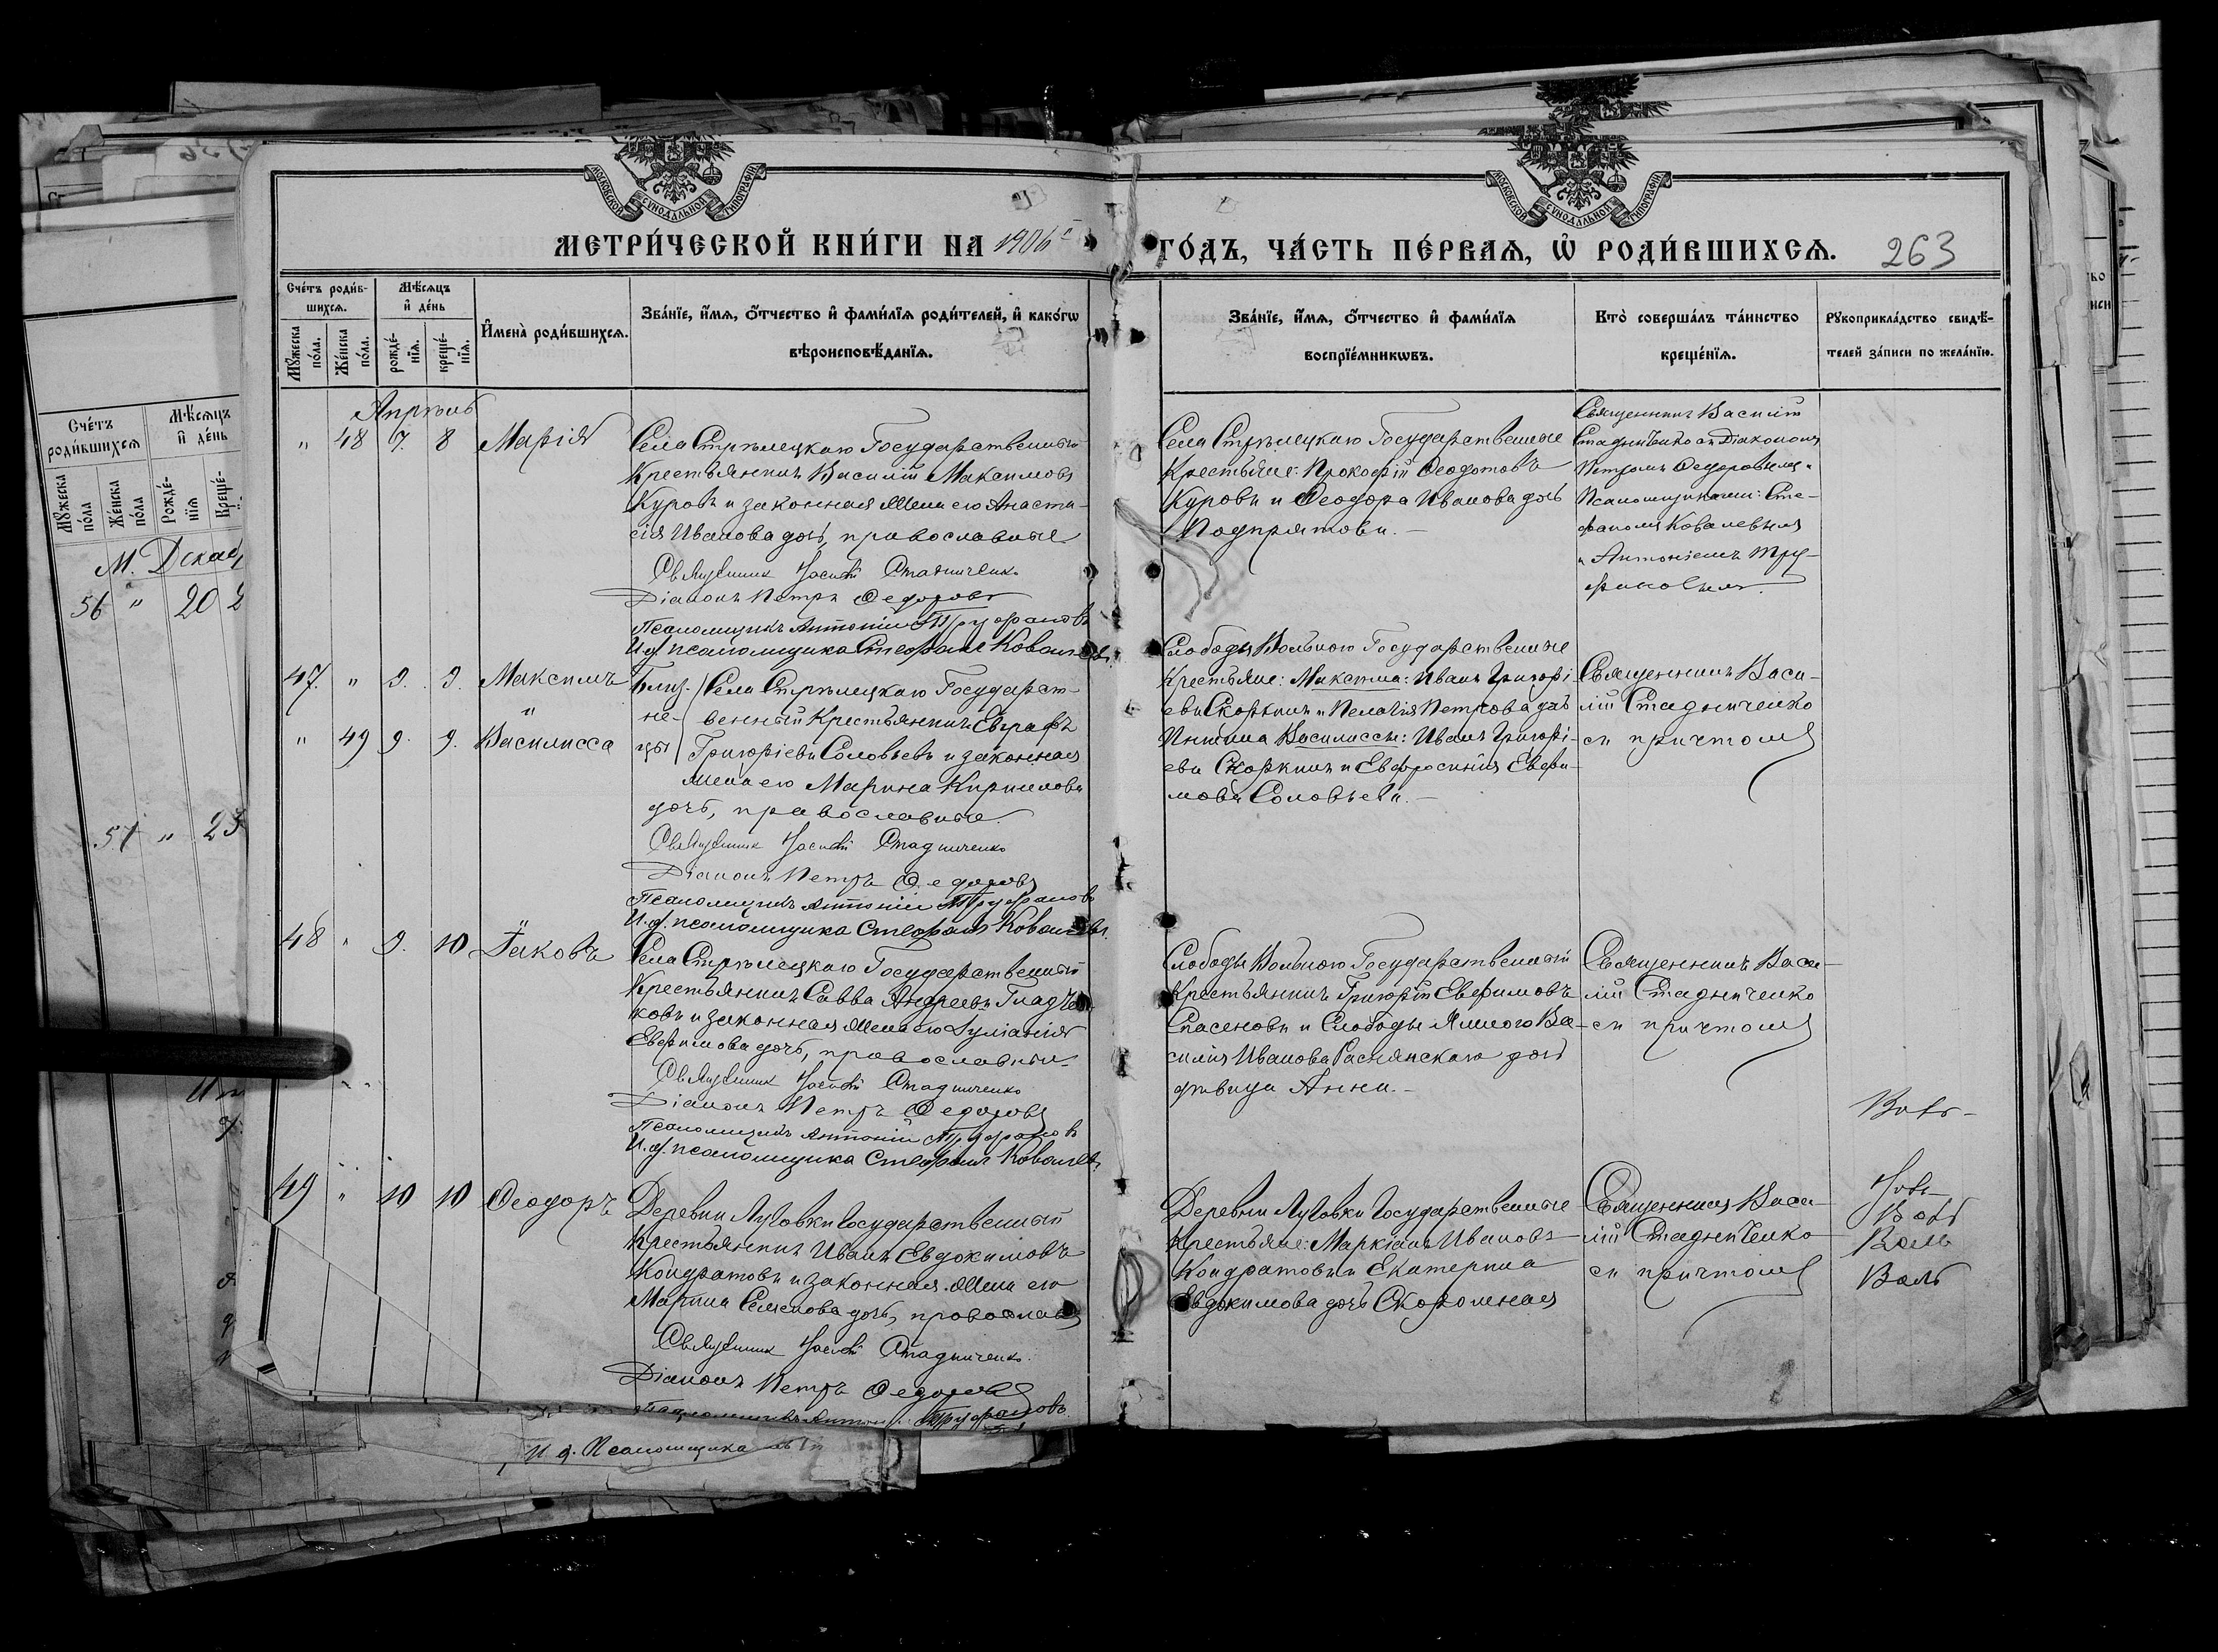 МОСКОВСКОЙ СѴНОДАЛЬНОЙ ТИПОГРАФІИ
МОСКОВСКОЙ СѴНОДАЛЬНОЙ ТИПОГРАФІИ
МЕТРИ́ЧЕСКОЙ КНИ́ГИ НА 1906 ГО́ДЪ, ЧА́СТЬ ПЕ́РВАѦ, Ѡ҆ РОДИ́ВШИХСѦ. 263
Сче́тъ роди́в-
шихсѧ.
Мꙋ́жеска по́ла.
Же́нска по́ла.
Мѣ́сѧцъ
и҆ де́нь
рожде́-
нїѧ.
креще́-
нїѧ.
И҆мена̀ роди́вшихсѧ.
Зва́нїе, и҆́мѧ, ѻ҆́тчество и҆ фами́лїѧ роди́телей, и҆ како́гѡ
вѣроисповѣ́данїѧ.
Зва́нїе, и҆́мѧ, ѻ҆́тчество и҆ фами́лїѧ
воспрїе́мникѡвъ.
Кто̀ соверша́лъ та́инство
креще́нїѧ.
Рꙋкоприкла́дство свидѣ́-
телей за́писи по жела́нїю.
Апрѣль
" 48 7. 8 Марія
Села Стрѣлецкаго Государственный
Крестьянинъ Василій Максимовъ
Куровъ и законная жена его Анаста-
сія Иванова дочь, православные
Священник Василій Стадниченко
Діаконъ Петръ Федоровъ
Псаломщикъ Антоній Труфановъ
И.д. псаломщика Стефанъ Ковалевъ.
Села Стрѣлецкаго Государственные
Крестьяне: Прокофій Феодотовъ
Куровъ и Феодора Иванова дочь
Подпрятова. —
Священникъ Василій
Стадниченко съ Діакономъ
Петромъ Федоровымъ и
Псаломщиками: Сте-
фаномъ Ковалевымъ
и Антоніемъ Тру-
фановымъ.
47. " 9. 9. Максимъ
"
" 49 9. 9. Василисса
Близ-
не-
цы
Села Стрѣлецкаго Государст-
венный Крестьянинъ Евграфъ
Григоріевъ Соловьевъ и законная
жена его Марина Кириллова
дочь, православные.
Священник Василій Стадниченко
Діаконъ Петръ Федоровъ
Псаломщикъ Антоній Труфановъ
И.д. псаломщика Стефанъ Ковалевъ.
Слободы Вольного Государственные
Крестьяне: Максима: Иванъ Григорі-
евъ Скоркинъ и Пелагія Петрова дочь
Василиссы: Иванъ Григорі-
евъ Скоркинъ и Евфросинія Евфи-
мова Соловьева. —
Священникъ Васи-
лій Стадниченко
съ причтомъ
48 " 9. 10 Іаковъ
Села Стрѣлецкаго Государственный
Крестьянинъ Савва Андреевъ Гладч-
ковъ и законная жена его Іуліанія
Евфимова дочь, православные
Священник Василій Стадниченко
Діаконъ Петръ Федоровъ
Псаломщикъ Антоній Труфановъ
И.д. псаломщика Стефанъ Ковалевъ.
Слободы Вольного Государственный
Крестьянинъ Григорій Евфимовъ
Спасеновъ и Слободы Ямного Ва-
силія Иванова дочь
дѣвица Анна. —
Священникъ Васи-
лій Стадниченко
съ причтомъ
49 " 10 10 Феодоръ
Деревни Луговки Государственный
Крестьянинъ Иванъ Евдокимовъ
Кондратовъ и законная жена его
Марѳа Семенова дочь, православ
Священник Василій Стадниченко
Діаконъ Петръ Федоровъ
Псаломщикъ Антоній Труфановъ
И.д. Псаломщика
Деревни Луговки Государственные
Крестьяне: Маркіанъ Ивановъ
Кондратовъ и Екатерина
Евдокимова дочь Скоромная
Священникъ Васи-
лій Стадниченко
съ причтомъ
Сче́тъ
роди́вшихсѧ
Мꙋ́жеска по́ла
Же́нска по́ла
Мѣ́сѧцъ
и҆ де́нь
Рожде́-
нїѧ
Креще́-
М. Декаб
56 " 20 2
57 " 23